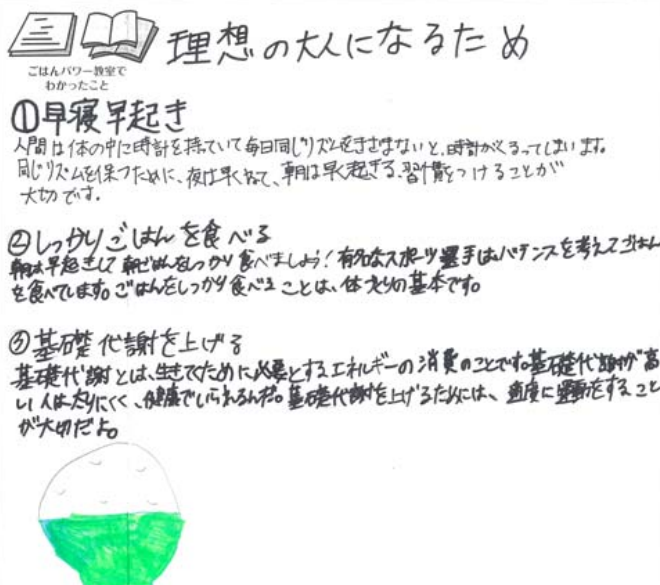 理想の大人になるため
ごはんパワー教室で
わかったこと
①早寝早起き
人間は体の中に時計を持っていて毎日同じリズムをきざまないと、時計がくるってしまいます。
同じリズムを保つために、夜は早くねて、朝は早く起きる習慣をつけることが
大切です。
②しっかりごはんを食べる
朝は早起きして朝ごはんをしっかり食べましょう！有名なスポーツ選手はバランスを考えてごはん
を食べています。ごはんをしっかり食べることは、体作りの基本です。
③基礎代謝を上げる
基礎代謝とは、生きてくために必要とするエネルギーの消費のことです。基礎代謝が高
い人は太りにくく、健康でいられるんだ。基礎代謝を上げるためには、適度に運動をすること
が大切だよ。